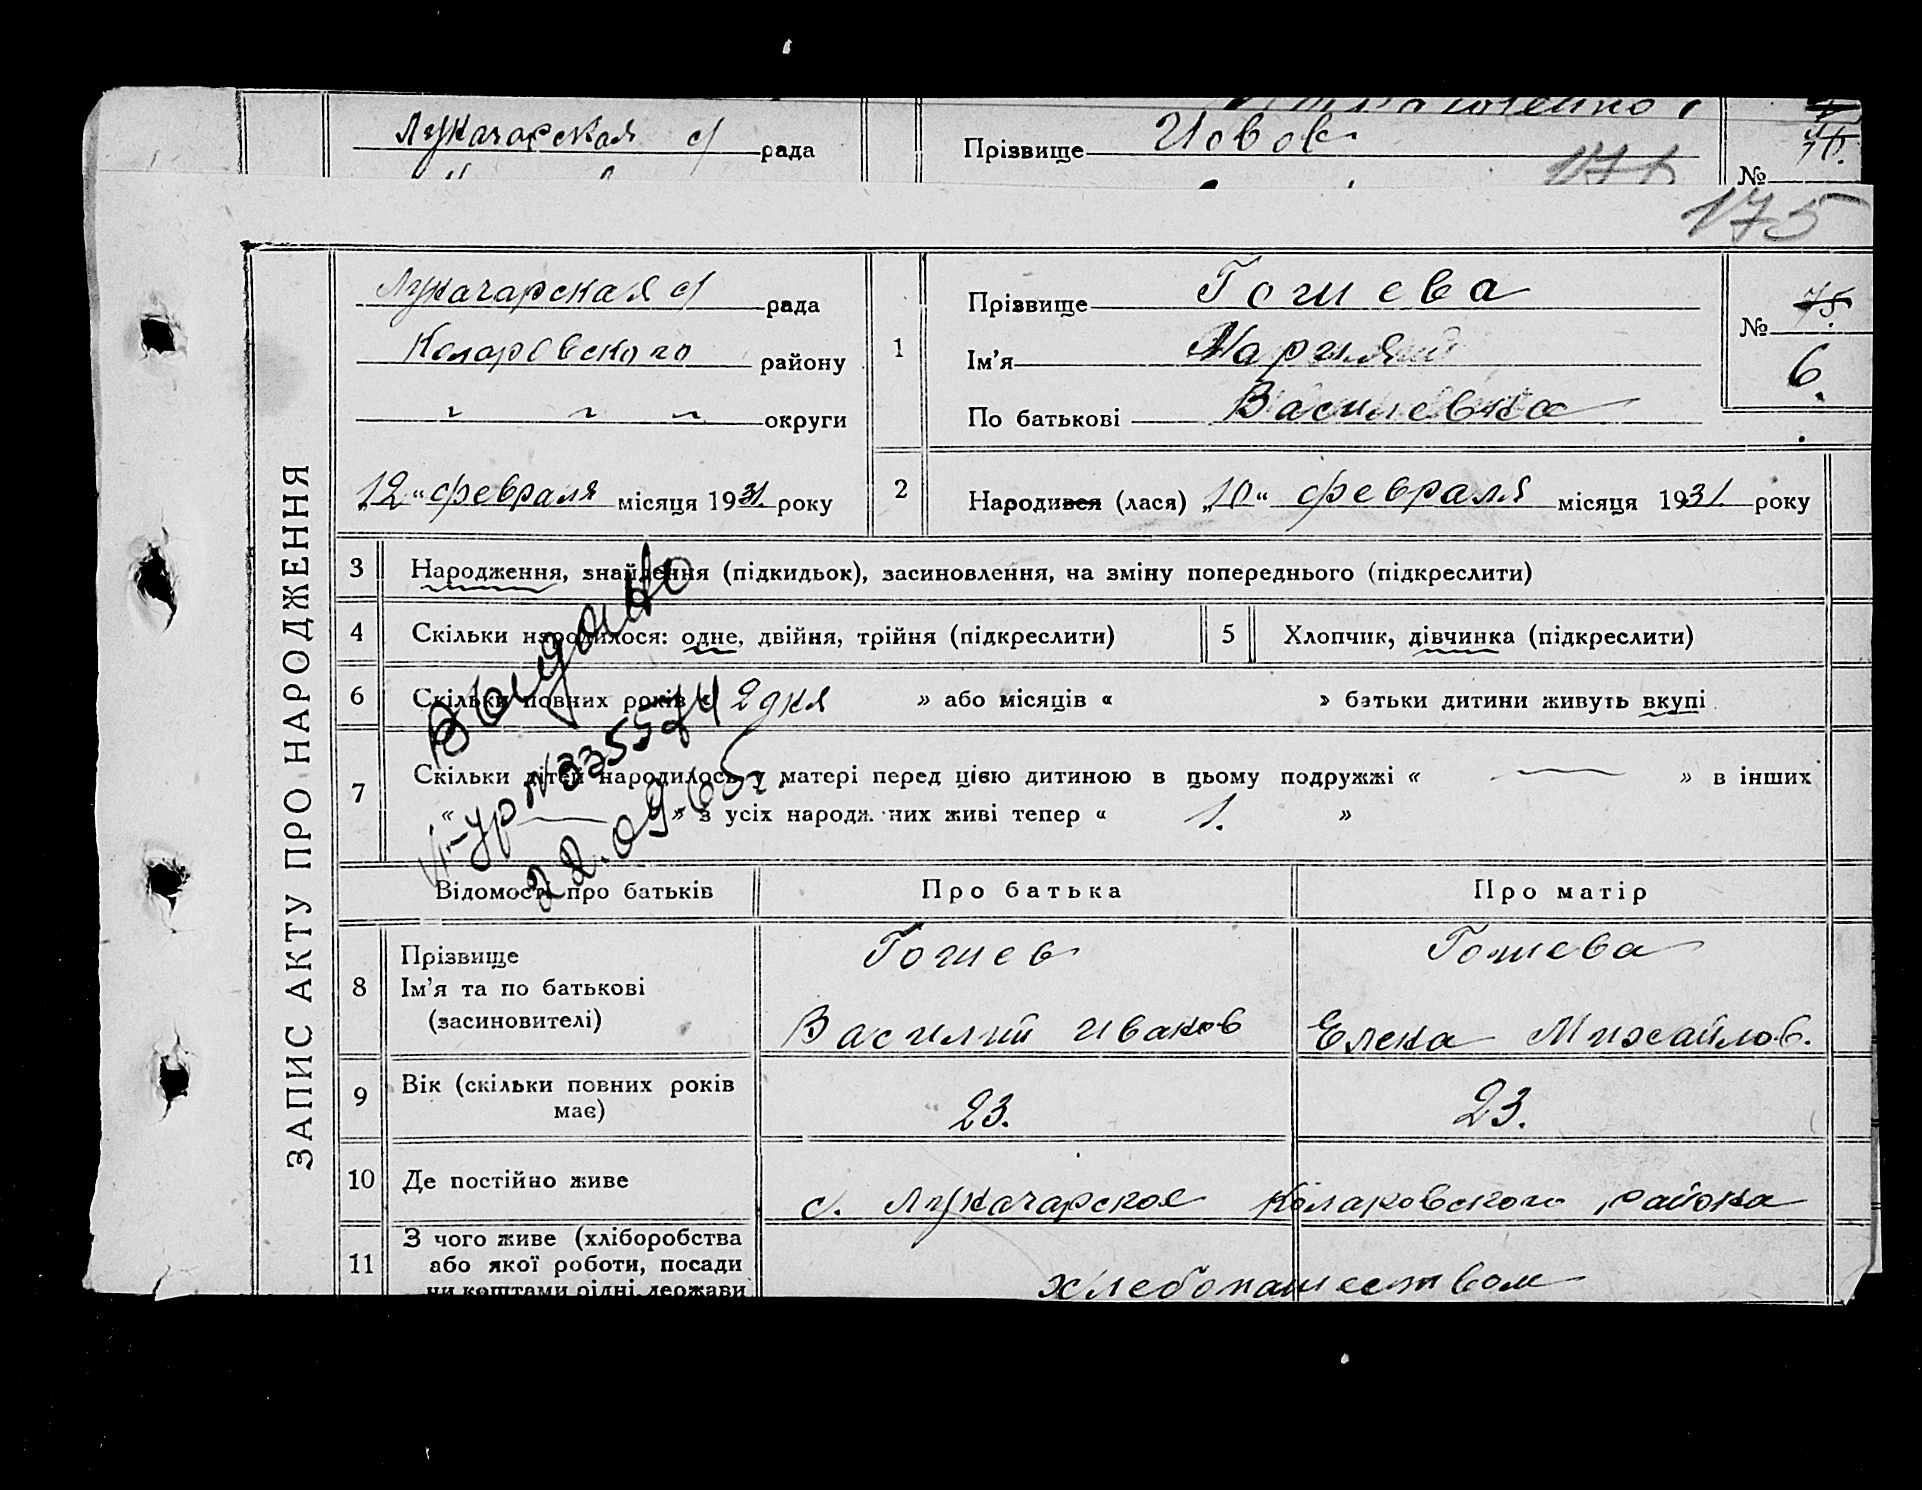 Луначарская с/ рада
Прізвище Иовов
№ 76.
175
ЗАПИС АКТУ ПРО НАРОДЖЕННЯ
Луначарская с/ рада
Коларовского району
" " " округи
„12“ февраля місяця 1931. року
1
Прізвище Гогиева
Ім'я
По батькові Василевна
№ 75.
6.
2
Народився (лася) „10“ февраля місяця 1931. року
3 Народження, знайдення (підкидьок), засиновлення, на зміну попереднього (підкреслити)
4 Скільки народилося: одне, двійня, трійня (підкреслити)
5 Хлопчик, дівчинка (підкреслити)
6 Скільки повних років « 2 дня » або місяців « » батьки дитини живуть вкупі
7 Скільки дітей народилось у матері перед цією дитиною в цьому подружжі « — » в інших
« — » з усіх народж. них живі тепер « 1. »
Выдано
22.09.65
Відомості про батьків
Про батька
Про матір
8 Прізвище
Ім'я та по батькові
(засиновителі)
Гогиев
Василий Иванов
Гогиева
Елена Михайлов.
9 Вік (скільки повних років
має)
23.
23.
10 Де постійно живе
с. Луначарское Коларовского района
11 З чого живе (хліборобства
або якої роботи, посади
чи коштами рідні, держави
хлебопашеством